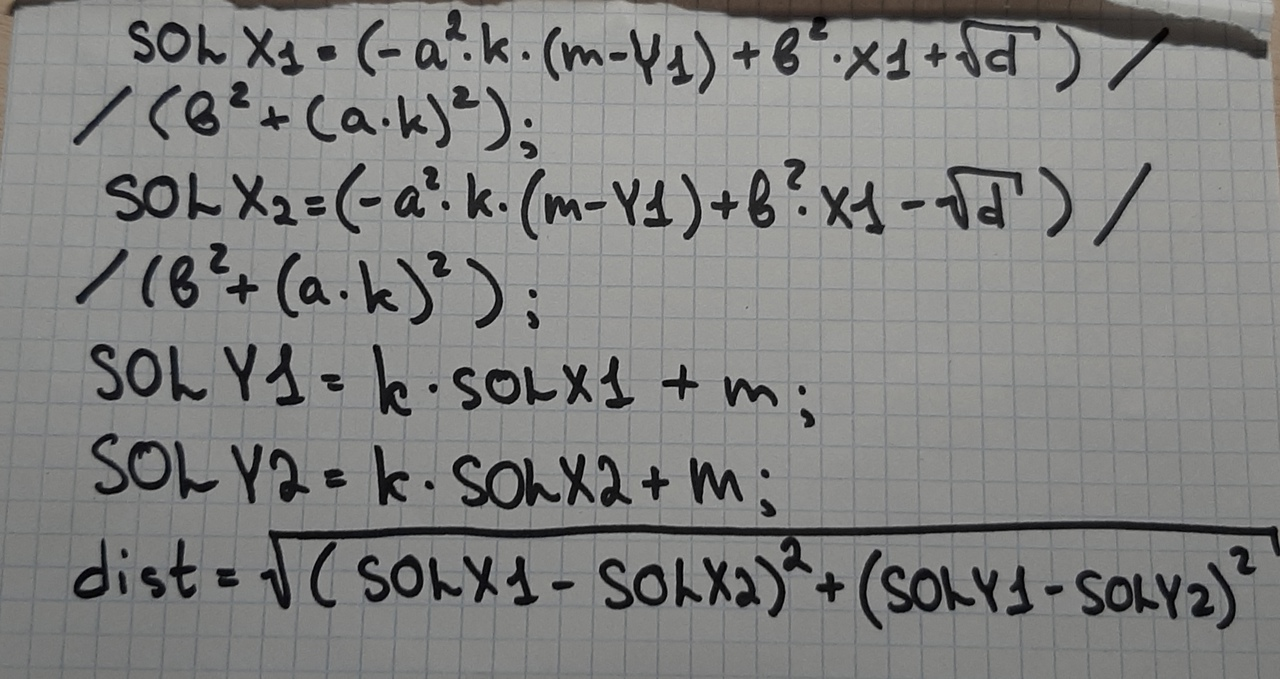 SOLX1=(-a²·k·(m-Y1)+b²·X1+√d)/
/(b²+(a·k)²);
SOLX2=(-a²·k·(m-Y1)+b²·X1-√d)/
/(b²+(a·k)²);
SOLY1=k·SOLX1+m;
SOLY2=k·SOLX2+m;
dist=√((SOLX1-SOLX2)²+(SOLY1-SOLY2)²